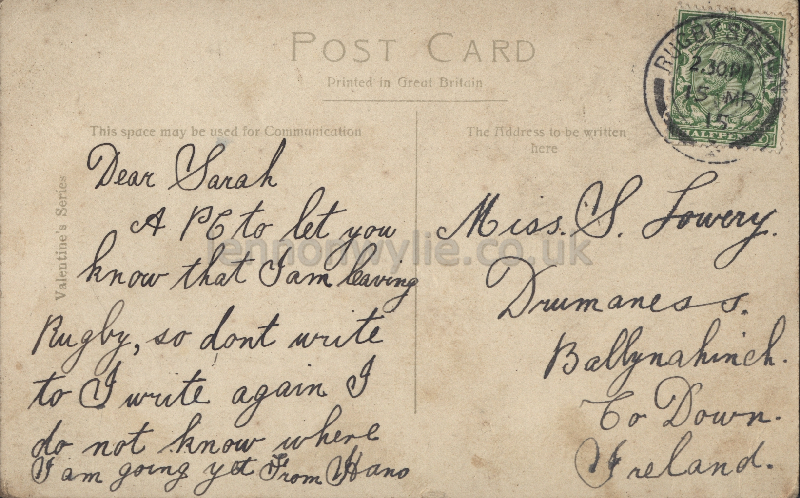 POST CARD
Printed in Great Britain
This space may be used for Communication
The Address to be written
here
Valentine's Series
RUGBY STATION
2.30PM
15 MR
15
HALFPENNY
Dear Sarah
A PC to let you
know that I am leaving
Rugby, so dont write
to I write again I
do not know where
I am going yet From Hano
Miss. S. Lowery.
Drumaness.
Ballynahinch.
Co Down.
Ireland.
lennonwylie.co.uk